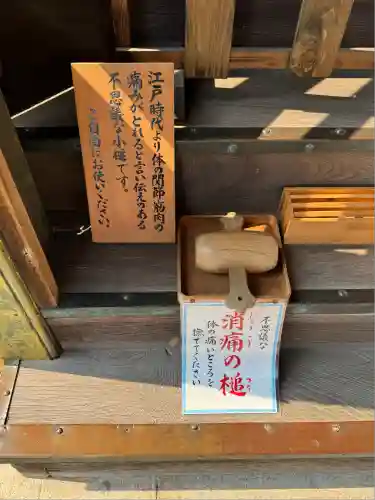 江戸時代より体の関節筋肉の
痛みがとれると言い伝えのある
不思議な小槌です。
ご自由にお使い下さい
不思議な
消痛の槌
体の痛いところを
撫でてください